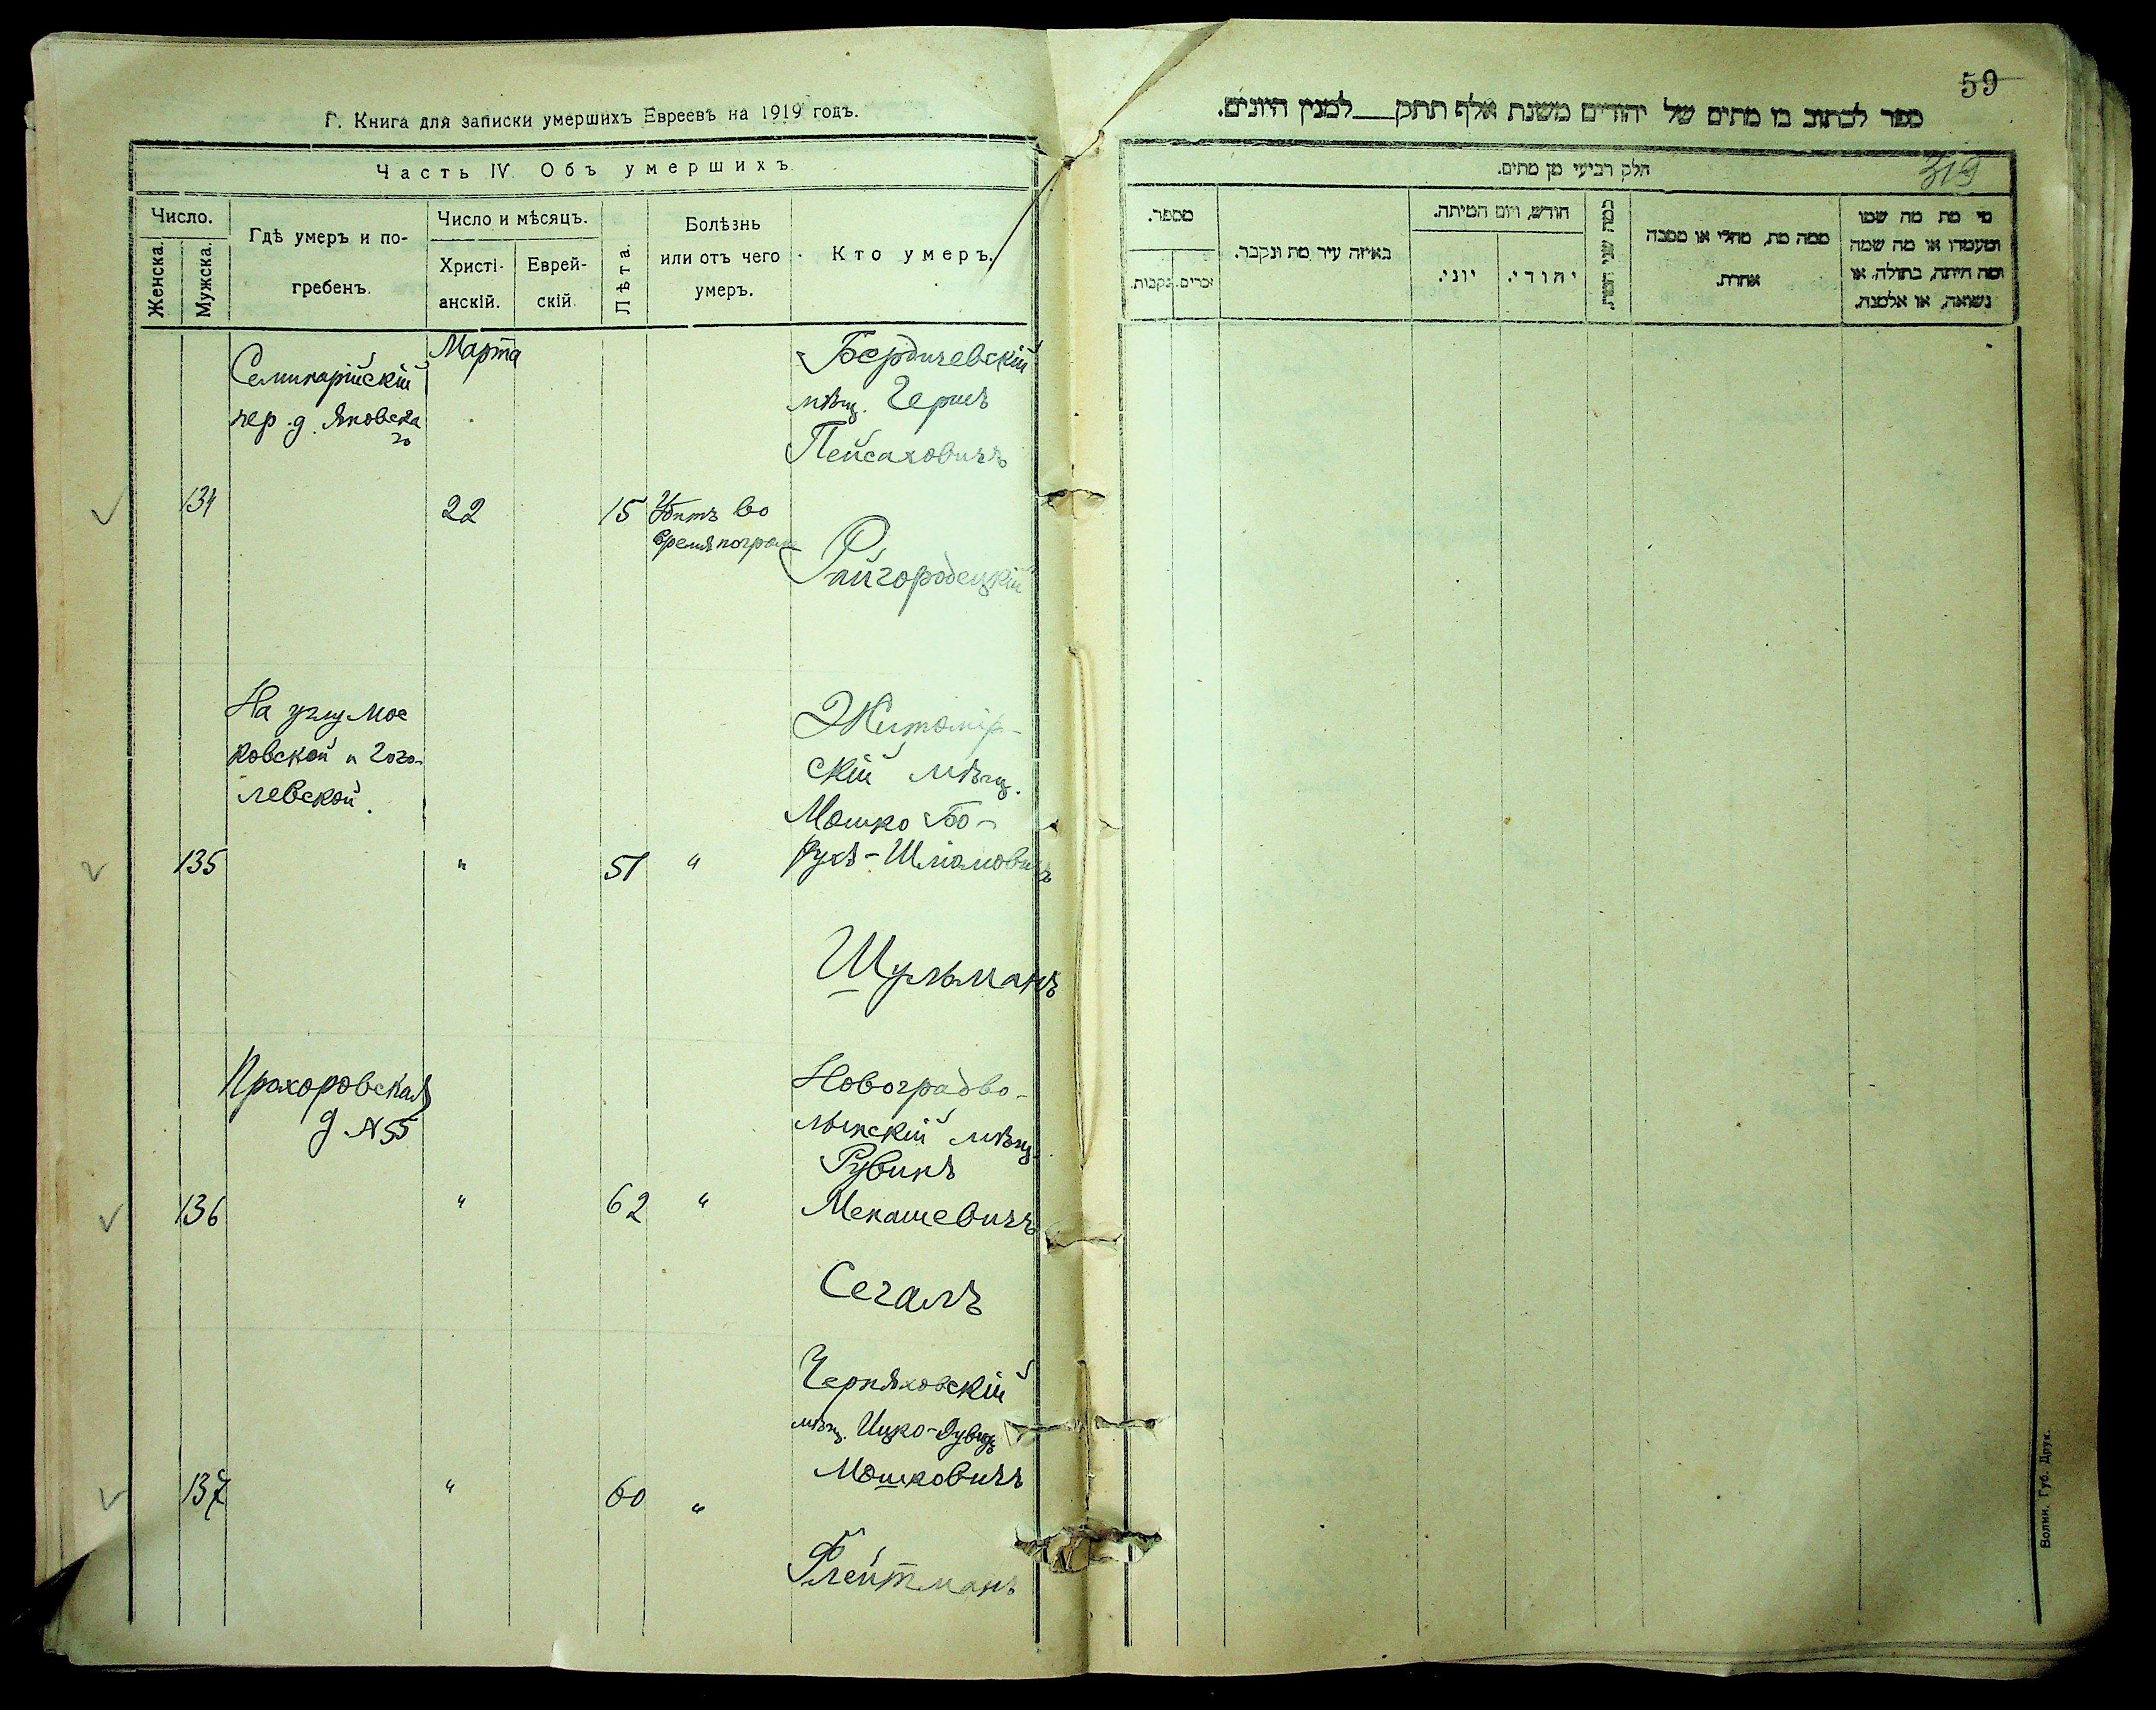 Г. Книга для записки умершихъ Евреевъ на 1919 годъ.
Часть IV. Объ умершихъ.
Число.
Женска.
Мужска.
Гдѣ умеръ и по-
гребенъ.
Число и мѣсяцъ.
Христі-
анскій.
Еврей-
скій.
Лѣта.
Болѣзнь
или отъ чего
умеръ.
Кто умеръ.
Семинарійскій
пер. д. Яновска
го
Марта
Бердичевскій
мѣщ. Герш
Пейсаховичъ
134
22
15
Убитъ во
время погрома
Райгородецкій
На углу Мос
ковской и Гого-
левской.
Житомір-
скій мѣщ.
Мошко Бо-
рухъ-Шліомовичъ
135
"
51
"
Шульманъ
Прохоровская
д. N 55
Новоградво-
лынскій мѣщ.
Рувинъ
Менашевичъ
136
"
62
"
Сегалъ
Черняховскій
мѣщ. Ицко-Дувидъ
Мошковичъ
137
"
60
"
Флейтманъ
59
ספר לכתוב בו מתים של יהודים משנת אלף תתק___למנין היונים.
319
חלק רביעי מן מתים.
מספר.
זכרים.
נקבות.
באיזה עיר מת ונקבר.
חודש, ויום המיתה.
יוני.
יהודי.
כמה שני המת.
ממה מת, מחלי או מסבה
אחרת.
מי מת מה שמו
ומעמדו או מה שמה
ומה היתה, בתולה, או
נשואה, או אלמנה.
Волин. Губ. Друк.